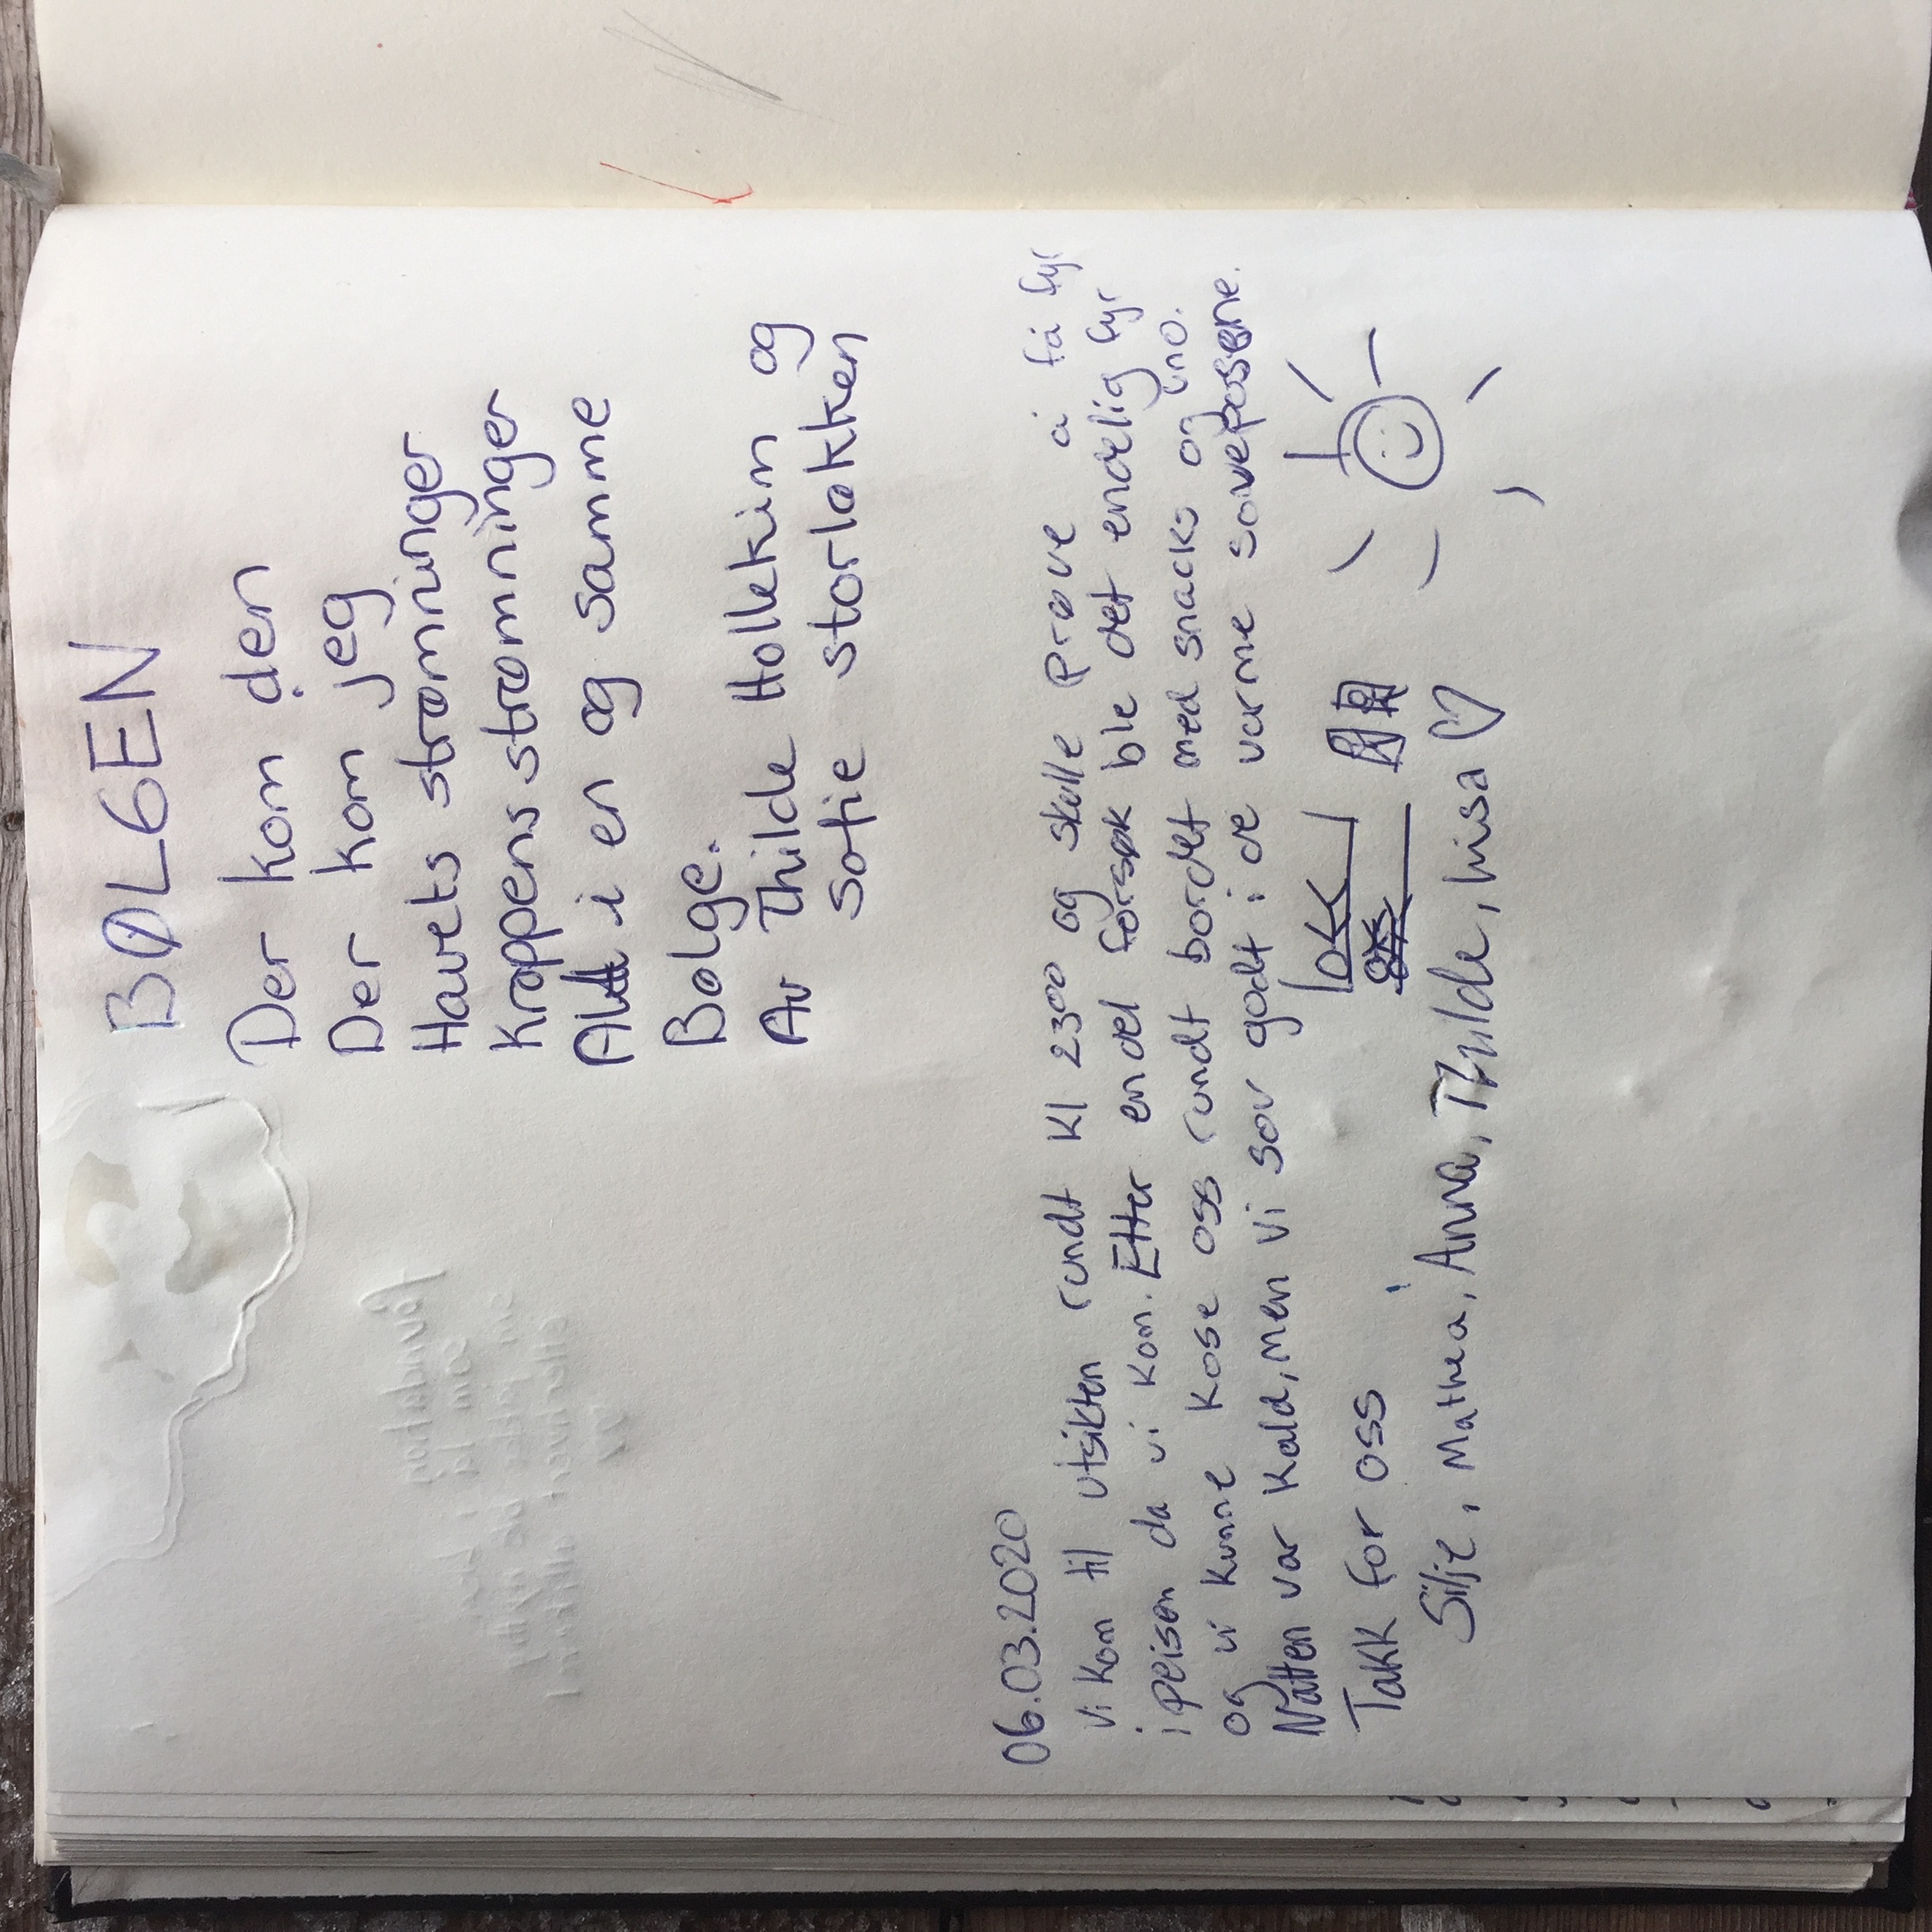 BØLGEN
Der kom den
Der kom jeg
Havets strømninger
Kroppens strømninger
Alt i en og samme
Bølge.
Av Thilde Hollekim og
Sofie Storløkken
06.03.2020
Vi kom til utsikten rundt kl 2300 og skulle prøve å få fyr
i peisen da vi kom. Etter en del forsøk ble det endelig fyr
og vi kunne kose oss rundt bordet med snacks og uno.
Natten var kald, men vi sov godt i de varme soveposene.
Takk for oss
Silje, Mathea, Anna, Thilde, Lisa ♡